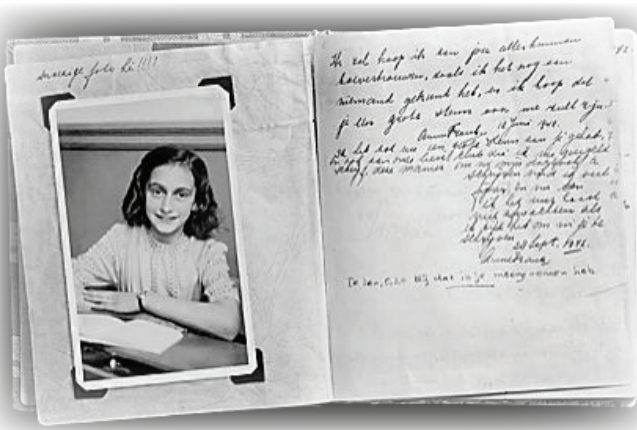 snoezige foto hè!!!!
Ik zal hoop ik aan jou alles kunnen
toevertrouwen, zoals ik het nog aan
niemand gekund heb, en ik hoop dat
je een grote steun voor me zult zijn.
Anne Frank. 12 Juni 1942.
Ik heb tot nu een grote steun aan je gehad,
en ook aan onze club die ik nu geregeld
schrijf, deze manier om in mijn dagboek te
schrijven vind ik veel
en nu kan
ik het uur haast
niet afwachten als
ik tijd heb om in je te
schrijven.
28 Sept. 1942.
Anne Frank
Ik ben, o, zo blij dat ik je meegenomen heb